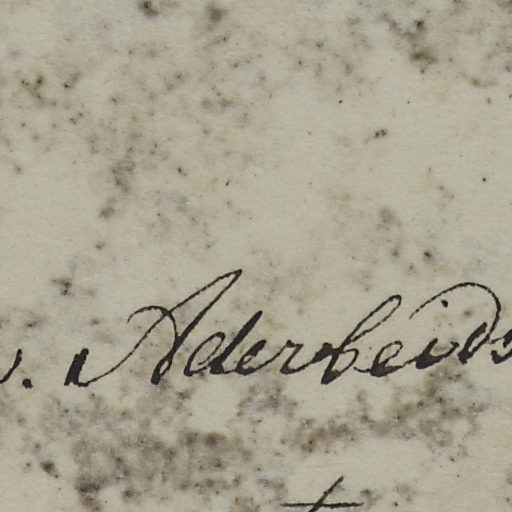 v. Aderbeids